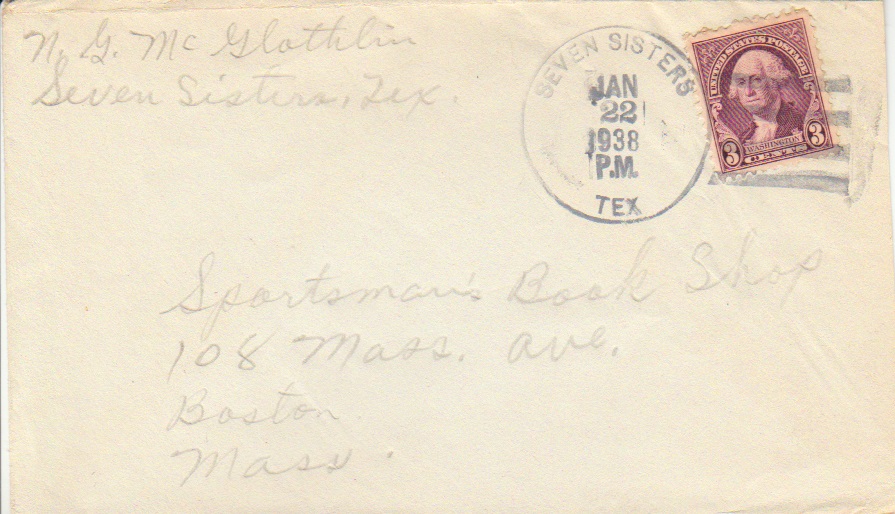 N. G. McGlothlin
Seven Sisters, Tex.
SEVEN SISTERS
JAN
22
1938
P.M.
TEX
UNITED STATES POSTAGE
3 WASHINGTON 3
CENTS
Sportsman's Book Shop
108 Mass. Ave.
Boston
Mass.